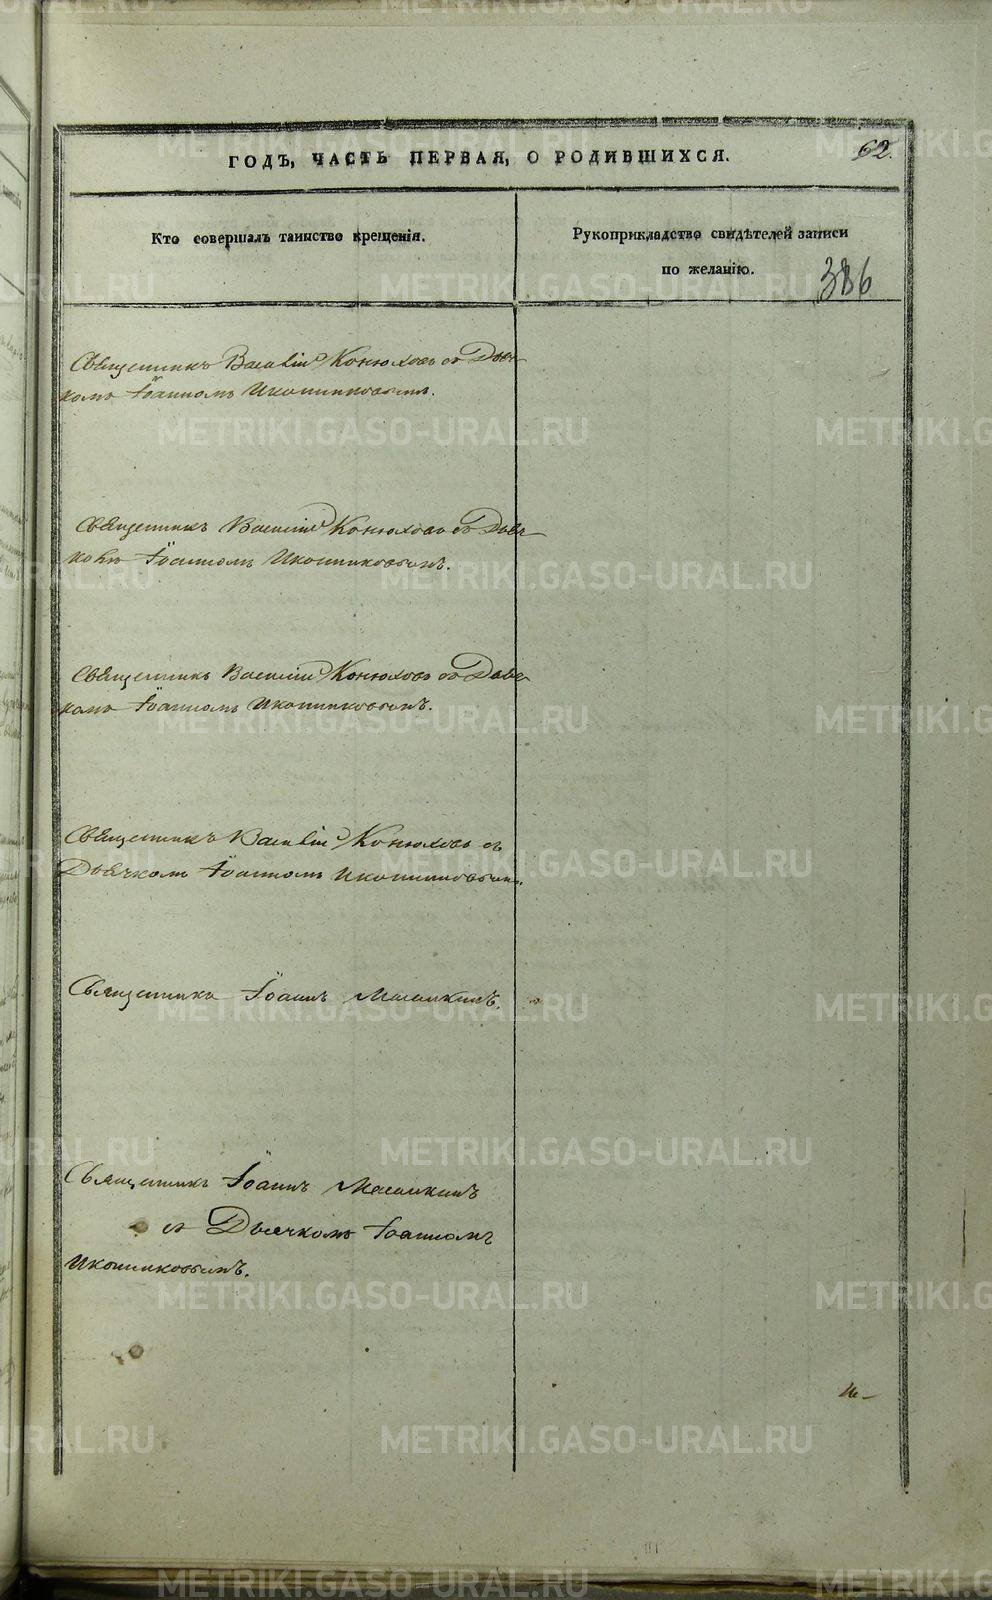 ГОДЪ, ЧАСТЬ ПЕРВАЯ, О РОДИВШИХСЯ.
62.
Кто совершалъ таинство крещенія.
Рукоприкладство свидѣтелей записи
по желанію.
386
Священникъ Василій Конюховъ съ Дьяч-
комъ Іоанномъ Иконниковымъ.
Священникъ Василій Конюховъ съ Дьяч-
комъ Іоанномъ Иконниковымъ.
Священникъ Василій Конюховъ съ Дьяч-
комъ Іоанномъ Иконниковымъ.
Священникъ Василій Конюховъ съ
Дьячкомъ Іоанномъ Иконниковымъ.
Священникъ Іоаннъ
Священникъ Іоаннъ
съ Дьячкомъ Іоанномъ
Иконниковымъ.
METRIKI.GASO-URAL.RU